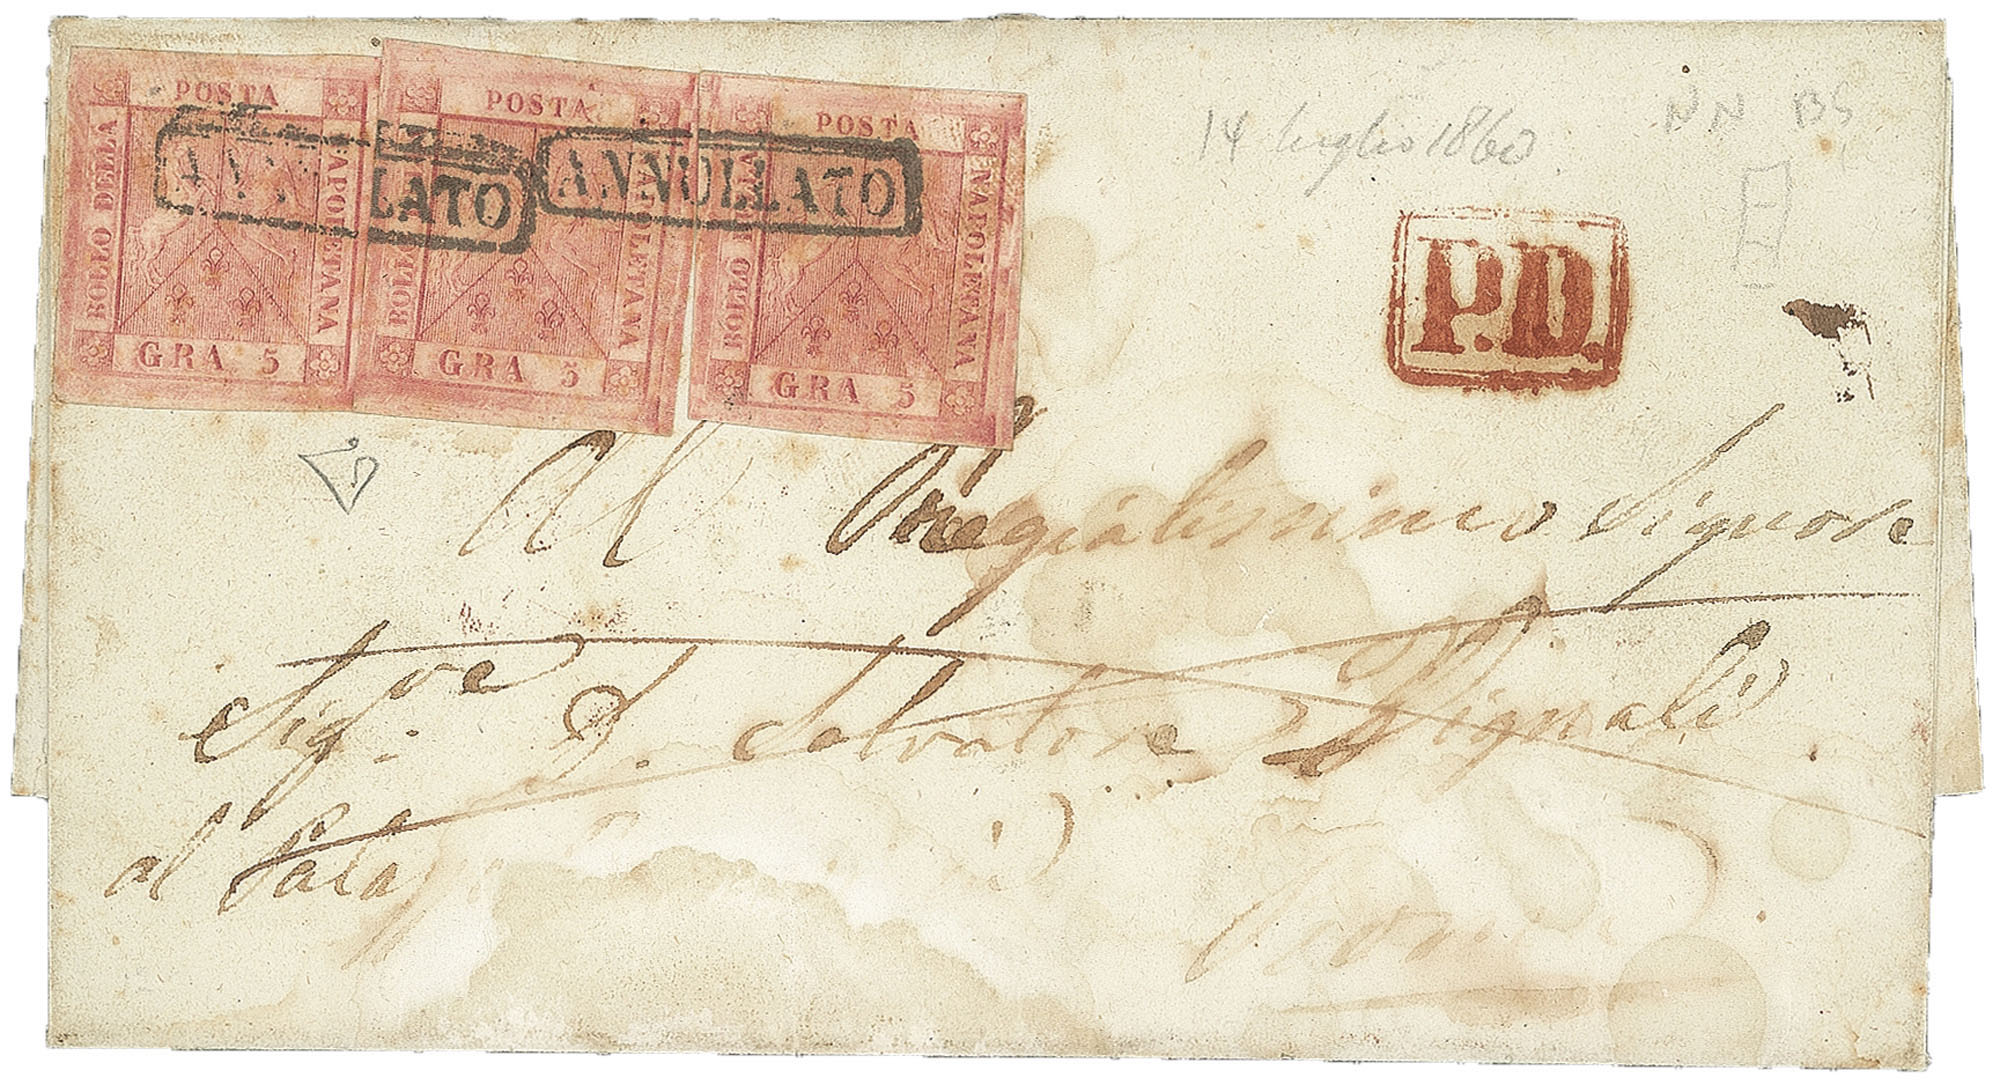 POSTA
BOLLO DELLA
NAPOLETANA
GRA 5
POSTA
BOLLO DELLA
NAPOLETANA
GRA 5
POSTA
BOLLO DELLA
NAPOLETANA
GRA 5
ANNULLATO
ANNULLATO
14 luglio 1860
NN BS
P.D.
Al Pregialissimo Signore
Sig.re D. Salvatore Vignali
al